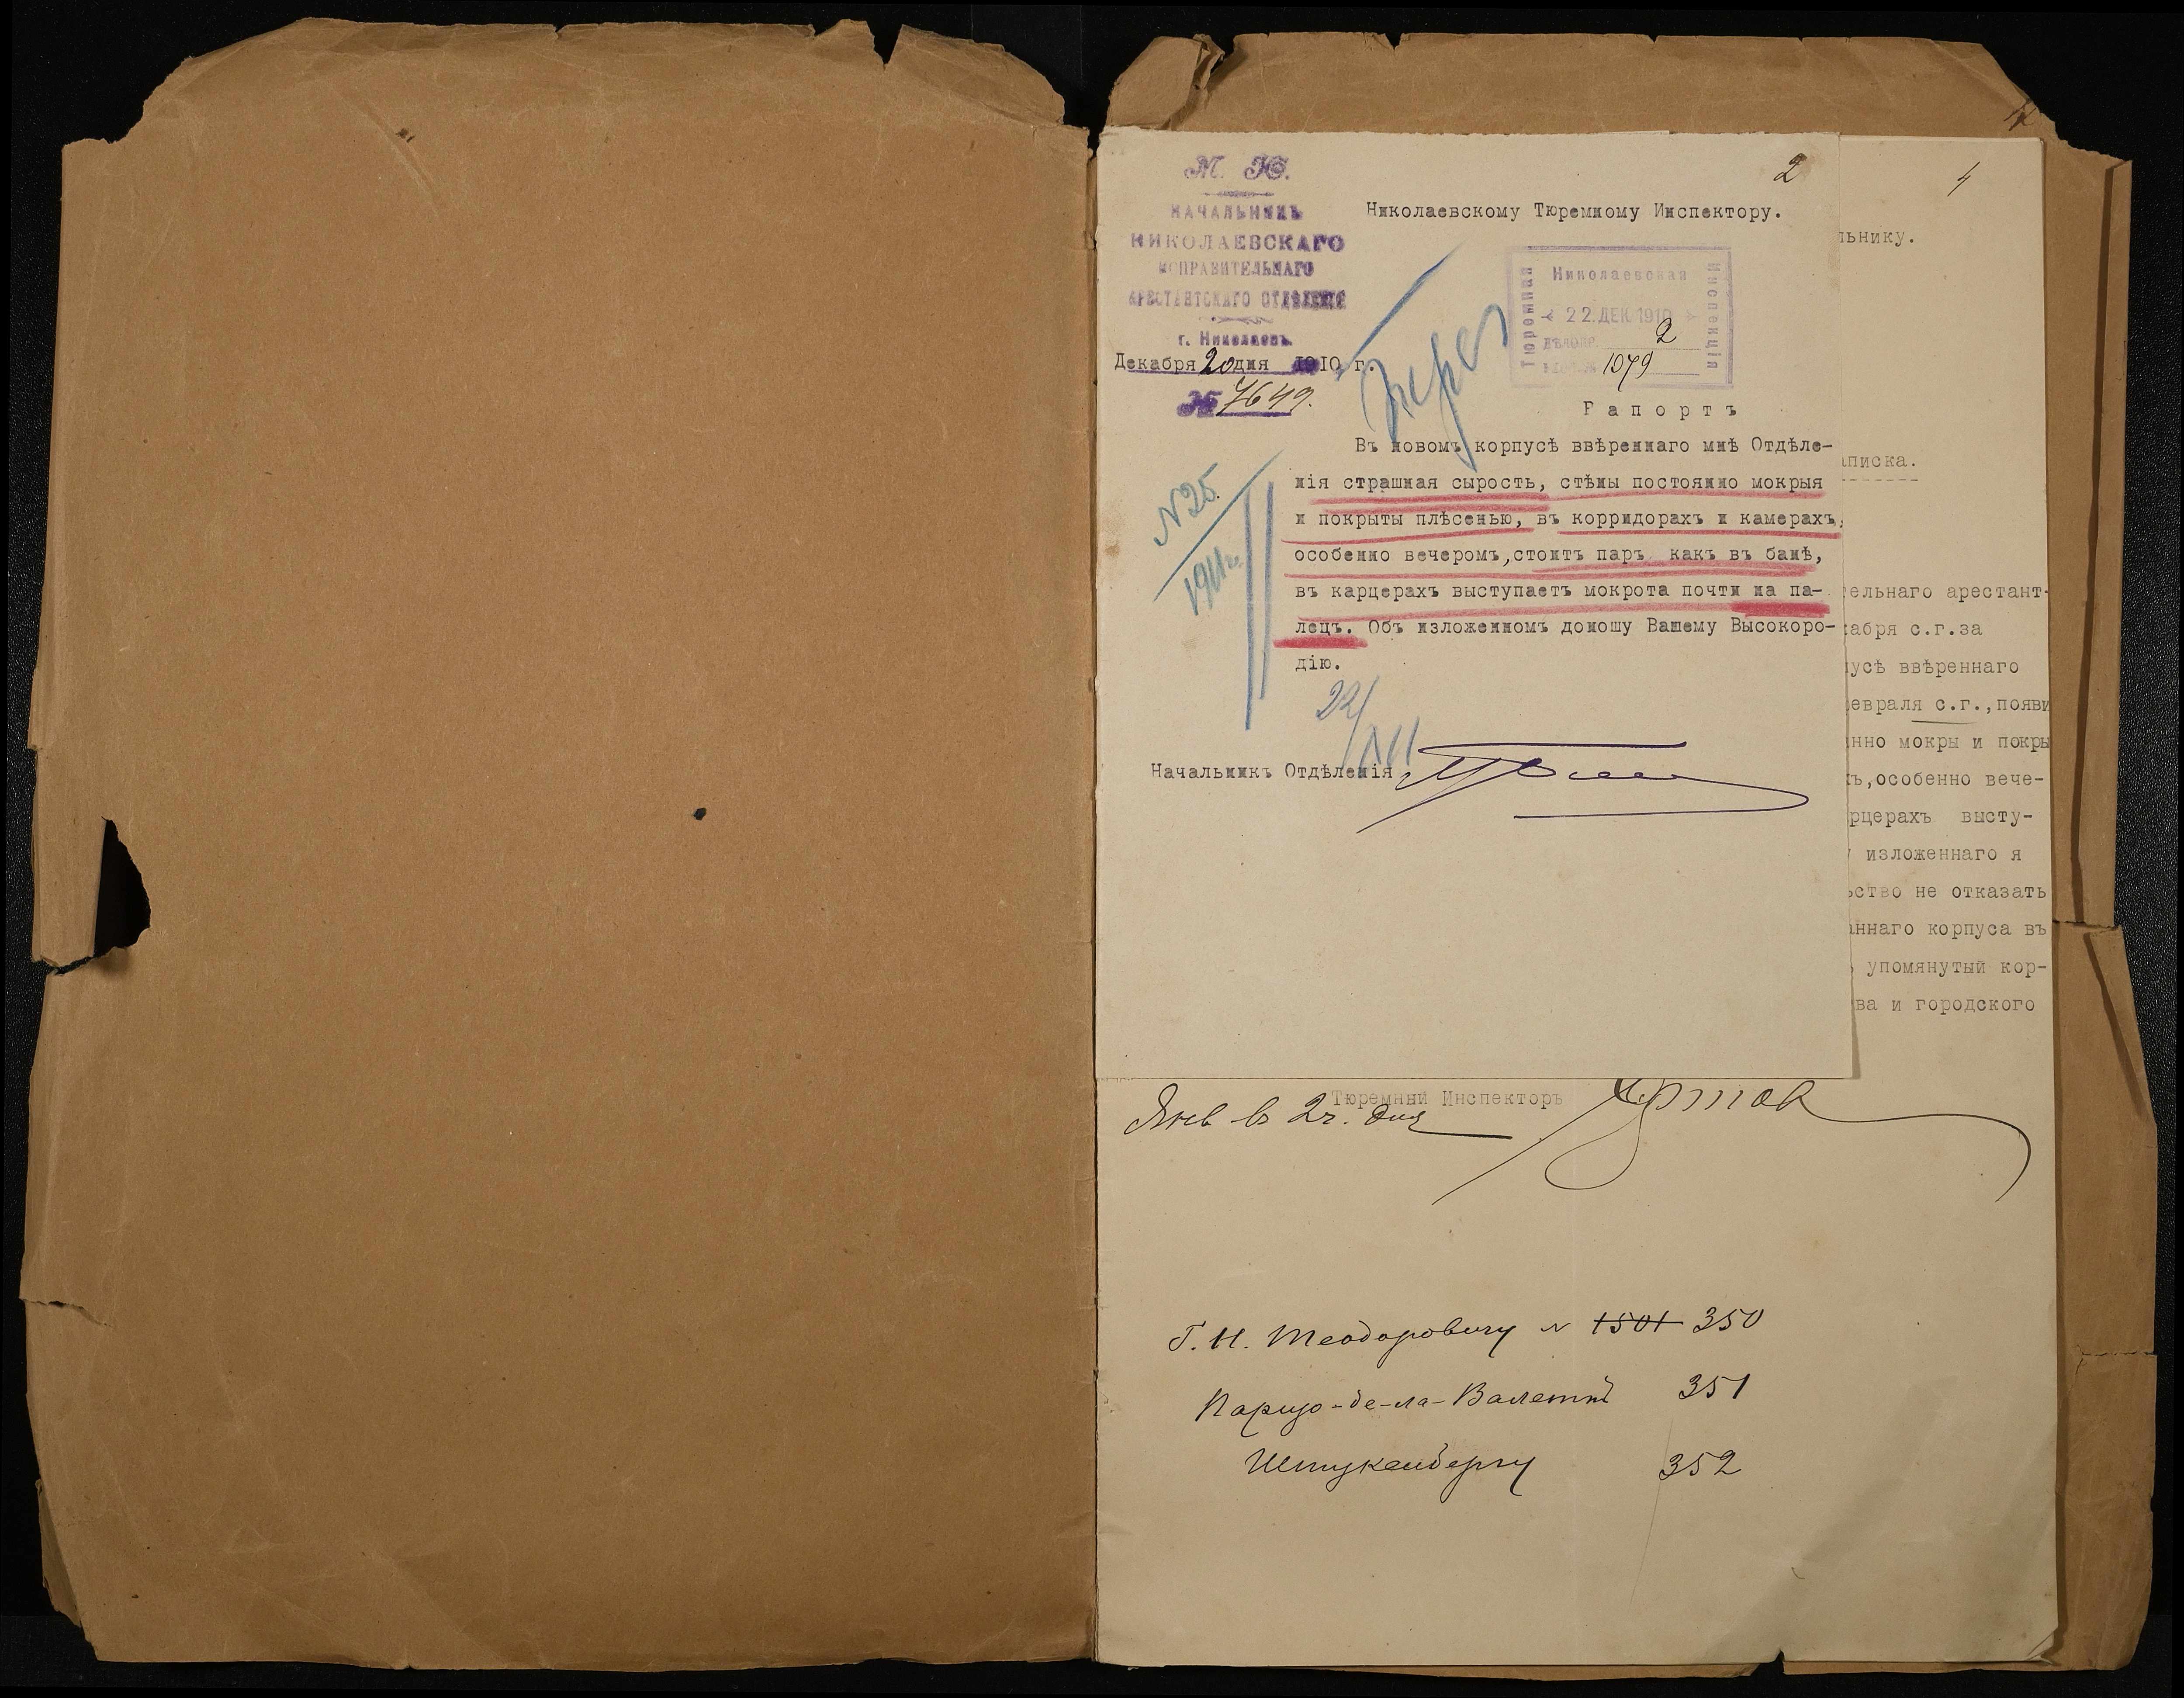 2
М. Ю.
НАЧАЛЬНИКЪ
НИКОЛАЕВСКАГО
ИСПРАВИТЕЛЬНАГО
АРЕСТАНТСКАГО ОТДѢЛЕНІЯ
г. Николаевъ.
Декабря 20 дня 1910 г.
№ 7649.
Николаевскому Тюремному Инспектору.
Тюремная
Николаевская
Инспекція
22. ДЕК. 1910
2
1079
№ 25
1911 г.
Рапортъ
Въ новомъ корпусѣ ввѣреннаго мнѣ Отдѣле-
нія страшная сырость, стѣны постоянно мокрыя
и покрыты плѣсенью, въ корридорахъ и камерахъ,
особенно вечеромъ,стоитъ паръ какъ въ банѣ,
въ карцерахъ выступаетъ мокрота почти на па-
лецъ. Объ изложенномъ доношу Вашему Высокоро-
дію.
22/XII
Начальникъ Отдѣленія
4
льнику.
аписка.
тельнаго арестант-
кабря с.г.за
пусѣ ввѣреннаго
евраля с.г.,появи
нно мокры и покры
хъ,особенно вече-
рцерахъ высту-
у изложеннаго я
ьство не отказать
аннаго корпуса въ
ъ упомянутый кор-
ва и городского
Тюремный Инспекторъ
в 2 ч. дня
Г. Н. Теодоровичу № 1501 350
Парцо-де-ла-Валетти 351
Штукенбергу 352